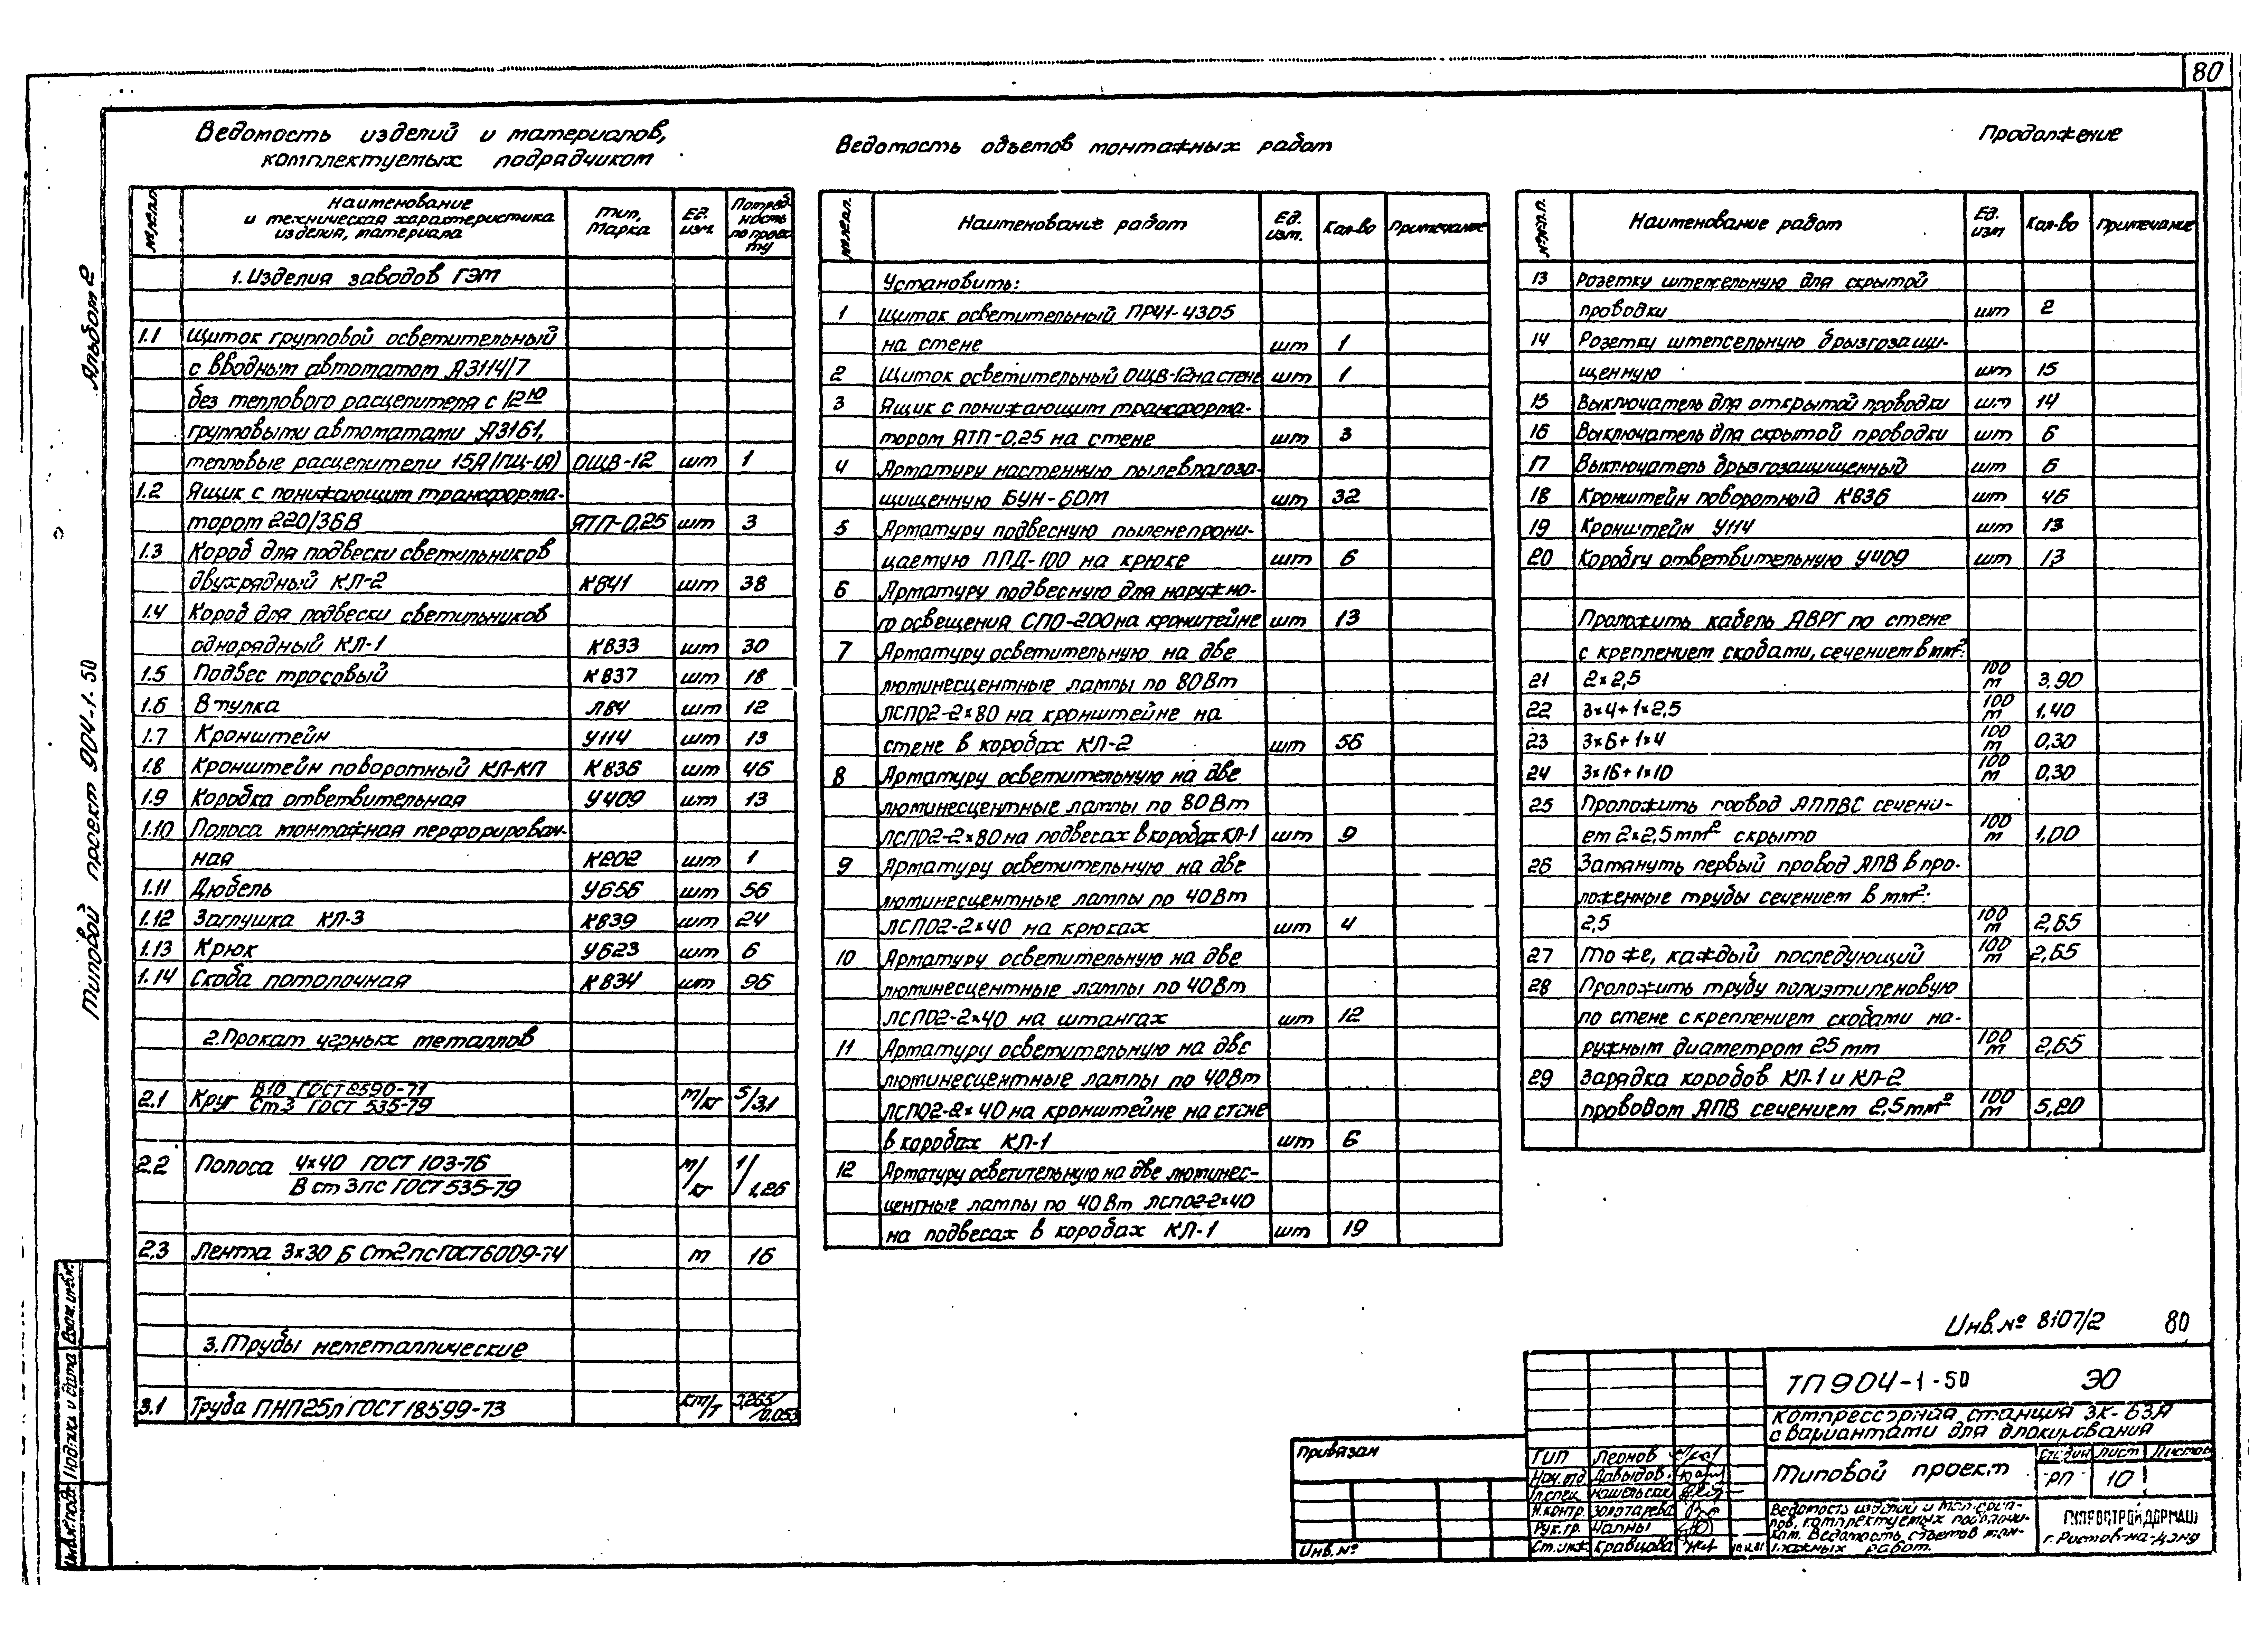 80
Ведомость изделий и материалов,
комплектуемых подрядчиком
№№ п.п. Наименование и техническая характеристика изделия, материала Тип, марка Ед. изм. Потребность по проекту
1. Изделия заводов ГЭМ
1.1 Щиток групповой осветительный
с вводным автоматом А3114/7
без теплового расцепителя с 12ю
групповыми автоматами А3161,
тепловые расцепители 15А (ПЩ-1А) ОЩВ-12 шт 1
1.2 Ящик с понижающим трансформа-
тором 220/36В ЯТП-0,25 шт 3
1.3 Короб для подвески светильников
двухрядный КЛ-2 К841 шт 38
1.4 Короб для подвески светильников
однорядный КЛ-1 К833 шт 30
1.5 Подвес тросовый К837 шт 18
1.6 Втулка Л84 шт 12
1.7 Кронштейн У114 шт 13
1.8 Кронштейн поворотный КЛ-КП К836 шт 46
1.9 Коробка ответвительная У409 шт 13
1.10 Полоса монтажная перфорирован-
ная К202 шт 1
1.11 Дюбель У656 шт 56
1.12 Заглушка КЛ-3 К839 шт 24
1.13 Крюк У623 шт 6
1.14 Скоба потолочная К834 шт 96
2. Прокат черных металлов
2.1 Круг В10 ГОСТ 2590-71 м/кг 5/3,1
Ст.3 ГОСТ 535-79
2.2 Полоса 4×40 ГОСТ 103-76 м/кг 1/1,26
В ст 3пс ГОСТ 535-79
2.3 Лента 3×30 Б Ст2пс ГОСТ 6009-74 м 16
3. Трубы неметаллические
3.1 Труба ПНП 25Л ГОСТ 18599-73 км/т 0,265/0.053
Ведомость объемов монтажных работ
№№ п.п. Наименование работ Ед. изм. Кол-во Примечание
Установить:
1 Щиток осветительный ПР41-4305
на стене шт 1
2 Щиток осветительный ОЩВ-12 на стене шт 1
3 Ящик с понижающим трансформа-
тором ЯТП-0,25 на стене шт 3
4 Арматуру настенную пылевлагоза-
щищенную БУН-60М шт 32
5 Арматуру подвесную пыленепрони-
цаемую ППД-100 на крюке шт 6
6 Арматуру подвесную для наружно-
го освещения СПО-200 на кронштейне шт 13
7 Арматуру осветительную на две
люминесцентные лампы по 80Вт
ЛСП02-2×80 на кронштейне на
стене в коробах КЛ-2 шт 56
8 Арматуру осветительную на две
люминесцентные лампы по 80Вт
ЛСП02-2×80 на подвесах в коробах КЛ-1 шт 9
9 Арматуру осветительную на две
люминесцентные лампы по 40Вт
ЛСП02-2×40 на крюках шт 4
10 Арматуру осветительную на две
люминесцентные лампы по 40Вт
ЛСП02-2×40 на штангах шт 12
11 Арматуру осветительную на две
люминесцентные лампы по 40Вт
ЛСП02-2×40 на кронштейне на стене
в коробах КЛ-1 шт 6
12 Арматуру осветительную на две люминес-
центные лампы по 40Вт ЛСП02-2×40
на подвесах в коробах КЛ-1 шт 19
Продолжение
№№ п.п. Наименование работ Ед. изм Кол-во Примечание
13 Розетку штепсельную для скрытой
проводки шт 2
14 Розетку штепсельную брызгозащи-
щенную шт 15
15 Выключатель для открытой проводки шт 14
16 Выключатель для скрытой проводки шт 6
17 Выключатель брызгозащищенный шт 6
18 Кронштейн поворотный К836 шт 46
19 Кронштейн У114 шт 13
20 Коробку ответвительную У409 шт 13
Проложить кабель АВРГ по стене
с креплением скобами, сечением в мм²:
21 2×2,5 100 м 3,90
22 3×4+1×2,5 100 м 1.40
23 3×6+1×4 100 м 0,30
24 3×16+1×10 100 м 0,30
25 Проложить провод АППВС сечени-
ем 2×2,5мм² скрыто 100 м 1,00
26 Затянуть первый провод АПВ в про-
ложенные трубы сечением в мм²:
2,5 100 м 2,65
27 То же, каждый последующий 100 м 2,65
28 Проложить трубу полиэтиленовую
по стене с креплением скобами на-
ружным диаметром 25мм 100 м 2,65
29 Зарядка коробов КЛ-1 и КЛ-2
проводом АПВ сечением 2,5мм² 100 м 5,20
Альбом 2
Типовой проект 904-1-50
Инв.№ подл. Подпись и дата Взам. инв.№
Инв.№ 8107/2 80
ТП 904-1-50 ЭО
Компрессорная станция 3К-63А
с вариантами для блокирования
Типовой проект
Стадия Лист Листов
РП 10
Ведомость изделий и материа-
лов, комплектуемых подрядчи-
ком. Ведомость объемов мон-
тажных работ.
ГИПРОСТРОЙДОРМАШ
г. Ростов-на-Дону
Привязан
Инв.№
ГИП Леонов
Нач.отд Давыдов
Гл.спец
Н.контр. Золотарева
Рук.гр.
Ст.инж Кравцова